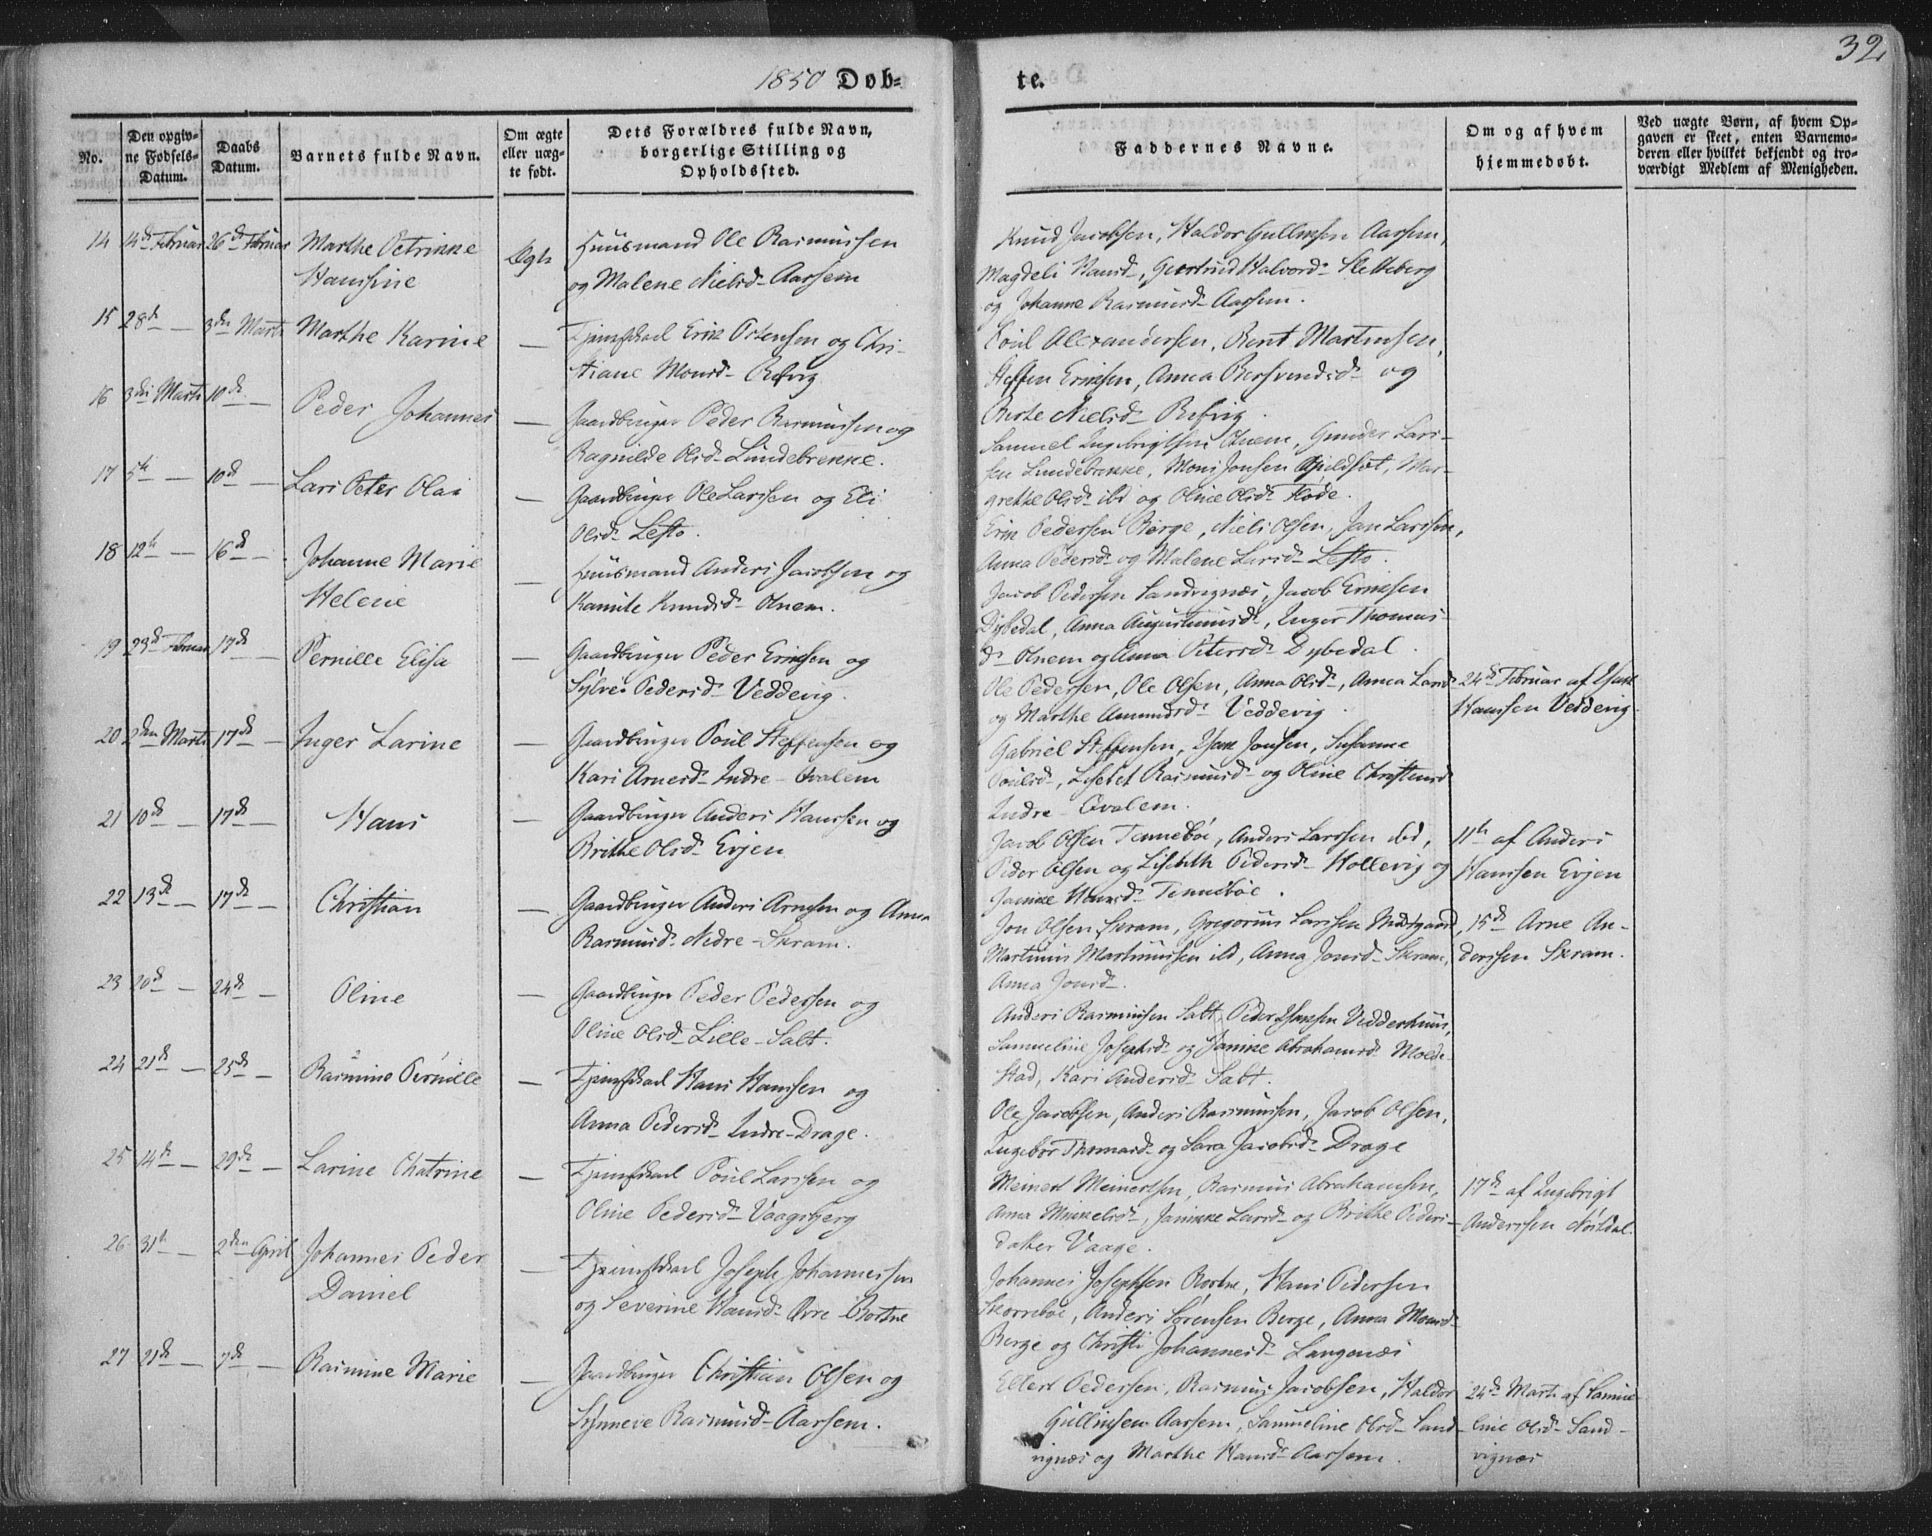 32
1850 Døb-
te.
No.
Den opgiv-
ne Fødsels-
Datum.
Daabs
Datum.
Barnets fulde Navn.
Om ægte
eller uæg-
te født.
Dets Forældres fulde Navn,
borgerlige Stilling og
Opholdssted.
Faddernes Navne.
Om og af hvem
hjemmedøbt.
Ved uægte Børn, af hvem Op-
gaven er skeet, enten Barnemo-
deren eller hvilket bekjendt og tro-
værdigt Medlem af Menigheden.
14 14de Februar 26de Februar Marthe Petrikke
Hansine
Ægte
Huusmand Ole Rasmussen
og Malene Nielsd. Aarsem
Knud Jacobsen, Haldor Gullinsen Aarsem,
Magdeli Hansd., Gertrud Halvord. Sletteberg
og Johanne Rasmusd. Aarsem.
15 28de — 3die Marts Marthe Karine —
Tjenestkarl Erik Ostensen og Chri-
stiane Monsd. Refvig
Poul Alexandersen, Bent Martinsen,
Steffen Eriksen, Anna Bersvendsd. og
Berte Nielsd. Refvig.
16 3die Marts 10de — Peder Johannes —
Gaardbruger Peder Rasmussen og
Ragnilde Olsd. Lundebrekke.
Samuel Ingebrigtsen Otnem, Gunder Lars-
sen Lundebrekke, Mons Jonsen Gjeldsæt, Mar-
grethe Olsd. ibd og Oline Olsd. Fløde.
17 5te — 10de — Lars Peter Olai —
Gaardbruger Ole Larssen og Eli
Olsd. Lefto.
Erik Pedersen Berge, Niels Olsen, Jan Larssen,
Anna Pedersd. og Malene Larsd. Lefto.
18 12te — 16de — Johanne Marie
Helene —
Huusmand Anders Jacobsen og
Kamite Knudsd. Otnem.
Jacob Pedersen Sandvignæs, Jacob Eriksen
Dybedal, Anna Augustinusd., Inger Thomas-
d. Otnem og Anna Petersd. Dybedal.
19 23de Februar 17de — Pernille Elisa —
Gaardbruger Peder Eriksen og
Sylvei Pedersd. Veddevig.
Ole Pedersen, Ole Olsen, Anna Olsd., Anna Larsd.
og Marthe Amundsd. Veddevig.
24de Februar af Isak
Hanssen Veddevig.
20 2den Marts 17de — Inger Larine —
Gaardbruger Poul Steffensen og
Kari Arnesd. Indre-Qvalem
Gabriel Steffensen, Isak Jonsen, Susanne
Poulsd., Lisebet Rasmusd. og Oline Christensd.
Indre-Qvalem.
21 10de — 17de — Hans —
Gaardbruger Anders Hanssen og
Brithe Olsd. Evjen
Jacob Olsen Tennebøe, Anders Larssen ibd,
Peder Olsen og Lisebeth Pedersd. Hollevig og
Janike Hansd. Tennebøe.
11te af Anders
Hanssen Evjen
22 13de — 17de — Christian —
Gaardbruger Anders Arnesen og Anna
Rasmusd. Nedre-Skram.
Jon Olsen Skram, Gregorius Larssen Midtgaard,
Martinus Martinussen ibd, Anna Jonsd. Skram,
Anna Jonsd.
15de Arne An-
derssen Skram.
23 20de — 24de — Oline —
Gaardbruger Peder Pedersen og
Oline Olsd. Lille-Salt.
Anders Rasmussen Salt, Peder Isaksen Vedderhuus,
Samueline Josephsd. og Janike Abrahamsd. Molde-
stad, Kari Andersd. Salt.
24 21de — 25de — Rasmine Pernille —
Tjenestkarl Hans Hanssen og
Anna Pedersd. Indre-Drage.
Ole Jacobsen, Anders Rasmussen, Jacob Olsen,
Ingebor Thomasd. og Sara Jacobsd. Drage
25 14de — 29de — Larine Chatrine —
Tjenestkarl Poul Larssen og
Oline Pedersd. Vaagsberg
Meinert Meinertsen, Rasmus Abrahamsen,
Anna Mikkelsd., Janikke Larsd. og Brithe Peders-
datter Vaage.
17de af Ingebrigt
Anderssen Nordal.
26 31te — 2den April Johannes Peder
Daniel —
Tjenestkarl Joseph Johannessen
og Severine Hansd. Øvre-Bortne
Johannes Josephsen Bortne, Hans Pedersen
Skorrebøe, Anders Sørensen Berge, Anna Monsd.
Berge og Christi Johannesd. Langenæs
27 21de — 7de — Rasmine Marie —
Gaardbruger Christian Olsen og
Synneve Rasmusd. Aarsem.
Ellert Pedersen, Rasmus Jacobsen, Haldor
Gullinsen Aarsem, Samueline Olsd. Sand-
vignæs og Marthe Hansd. Aarsem.
24de Marts af Samue-
line Olsd. Sand-
vignæs